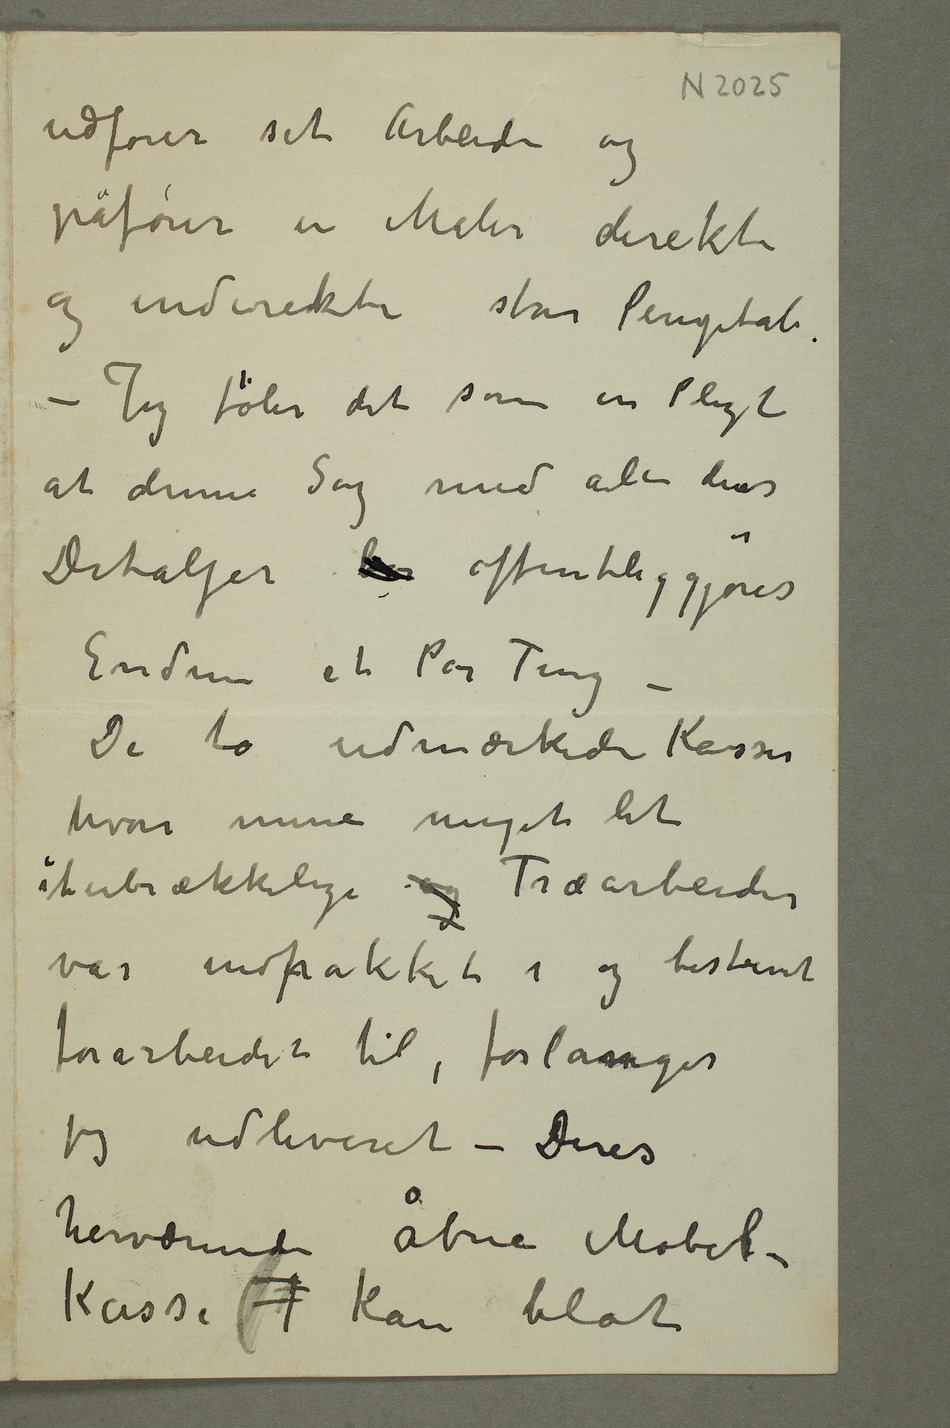 N 2025
udfører sit Arbeide og
påfører en Maler direkte
og indirekte stor Pengetab.
– Jeg føler det som en Pligt
at denne Sag med alle dens
Detaljer offentliggjøres
Endnu et Par Ting –
De to udmærkede Kasser
hvori mine meget let
itubrækkelige og Træarbeider
var indpakket i og bestemt
forarbeidet til, forlanger
jeg udleveret – Deres
herværende åbne Mobel-
Kasse kan blot